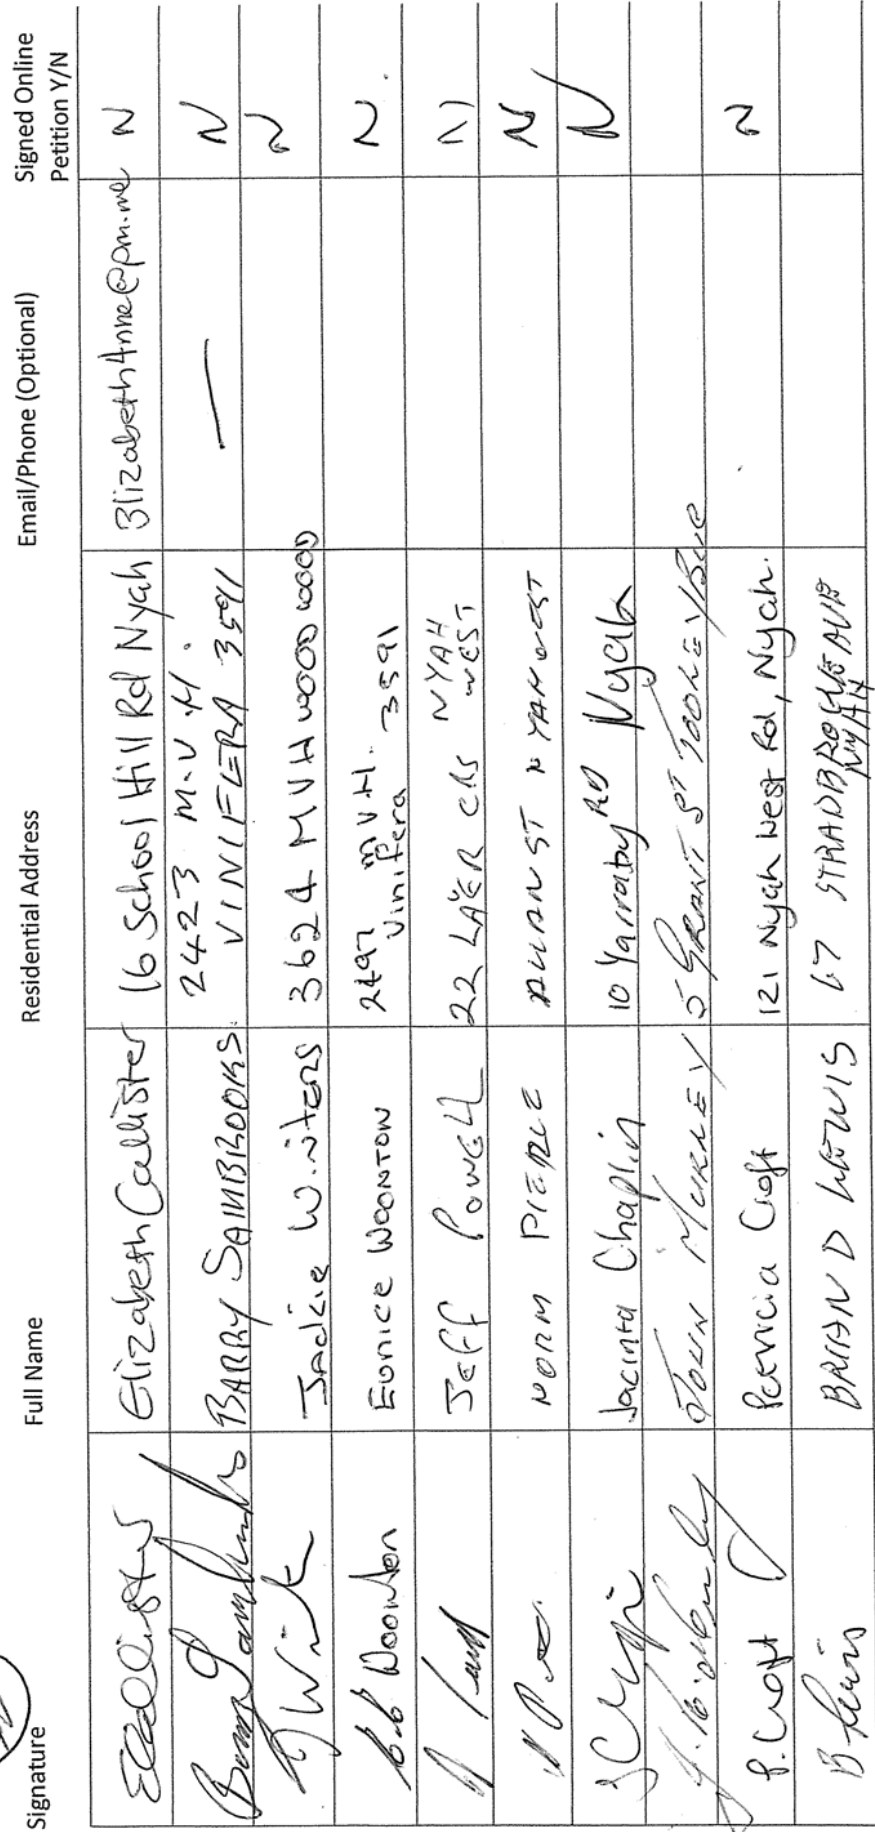 Signature Full Name Residential Address Email/Phone (Optional) Signed Online
Petition Y/N
Elizabeth Callister 16 School Hill Rd Nyah ElizabethAnne@pm.me N
BARRY SAMBROOKS 2423 M.V.H. — N
VINIFERA 3591
Jackie Winters 3624 MVH wood wood N
E Woonton Eunice WOONTON 2497 MVH. N.
Vinifera 3591
Jeff Powell 22 LAYER CRS NYAH N
WEST
NORM PIERCE ST NYAH WEST N
Jacinta Chaplin 10 Yarraby RD Nyah N
JOHN 5 GRANT ST TOOLEYBUC
P. Croft Patricia Croft 121 Nyah West Rd, Nyah. N
B Lewis BRIAN D LEWIS 67 STRADBROKE AVE
NYAH